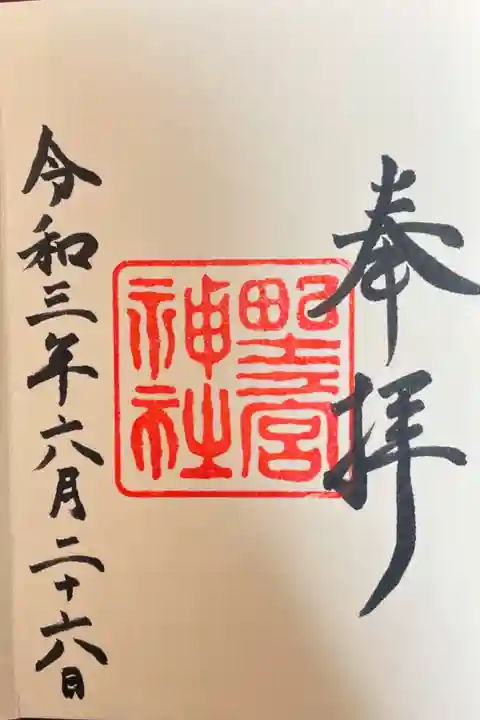 奉拝
野宮
神社
令和三年六月二十六日